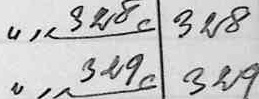 " " 328c 328
" " 329c 329